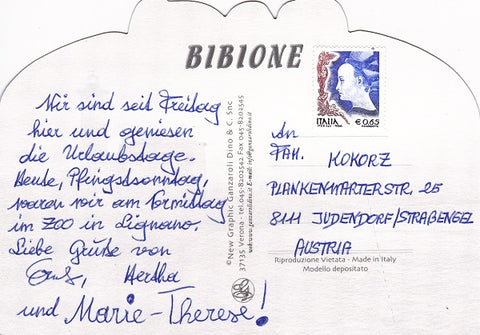 BIBIONE
Wir sind seit Freitag
hier und geniesen
die Urlaubstage.
Heute, Pfingstsonntag,
waren wir am Vormittag
im Zoo in Lignano.
Liebe Grüße von
Hertha
und Marie-Therese!
©New Graphic Ganzaroli Dino & C. Snc
37135 Verona - tel.045-8202542 Fax 045-8202545
ITALIA € 0,65
An
FAM. KOKORZ
PLANKENWARTERSTR. 25
8111 JUDENDORF/STRAßENGEL
AUSTRIA
Riproduzione Vietata - Made in Italy
Modello depositato